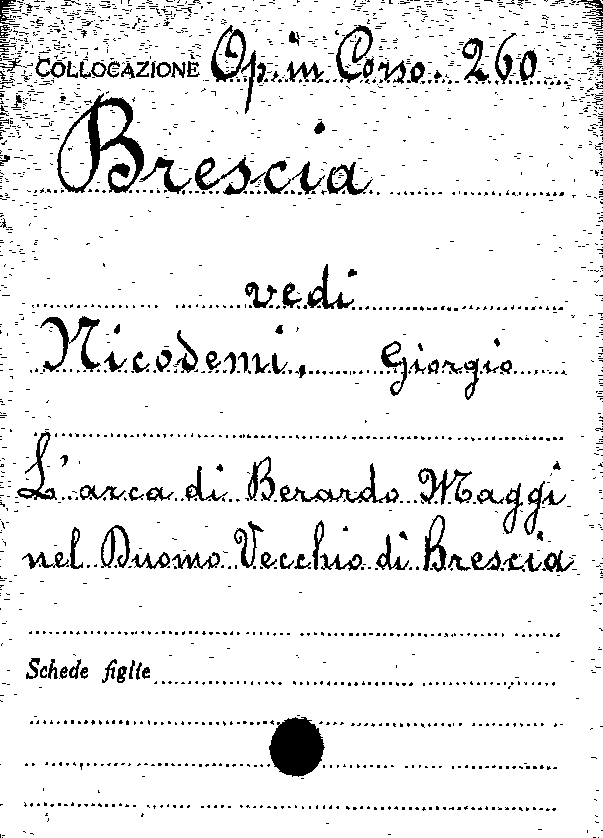 COLLOCAZIONE Op. in Corso. 260
Brescia
vedi
Nicodemi, Giorgio
L'arca di Berardo Maggi
nel Duomo Vecchio di Brescia
Schede figlie